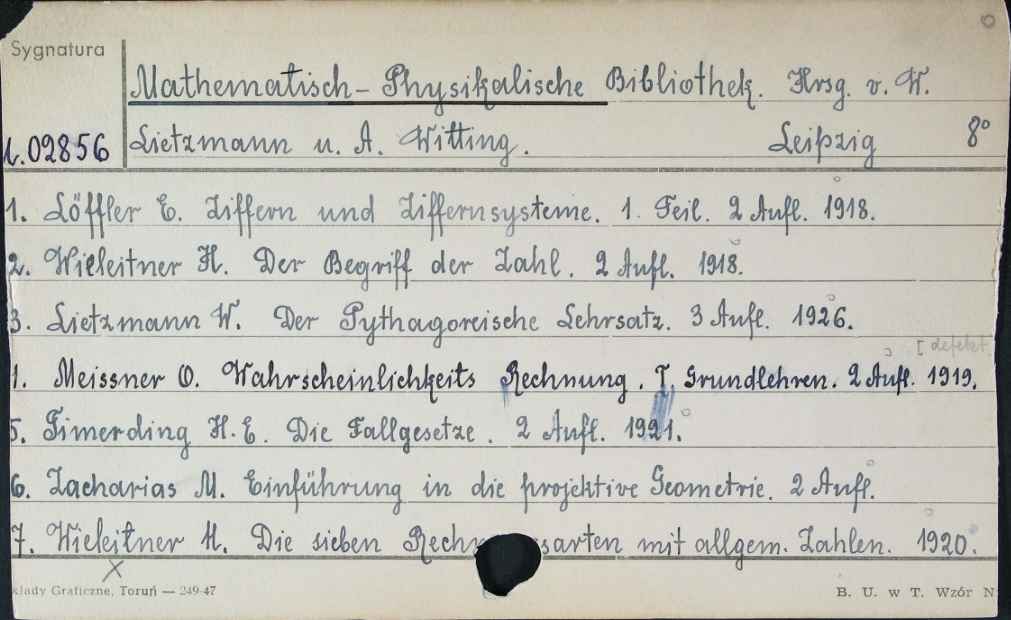 Sygnatura
Mathematisch-Physikalische Bibliothek. Hrsg. v. W.
1.02856 Lietzmann u. A. Witting. Leipzig 8°
1. Löffler E. Ziffern und Ziffernsysteme. 1. Teil. 2 Aufl. 1918.
2. Wieleitner H. Der Begriff der Zahl. 2 Aufl. 1918.
3. Lietzmann W. Der Pythagoreische Lehrsatz. 3 Aufl. 1926.
[defekt.
1. Meissner O. Wahrscheinlichkeits Rechnung. I. Grundlehren. 2 Aufl. 1919.
5. Timerding H.E. Die Fallgesetze. 2 Aufl. 1921.
6. Zacharias M. Einführung in die projektive Geometrie. 2 Aufl.
7. Wieleitner H. Die sieben mit allgem. Zahlen. 1920.
kłady Graficzne, Toruń — 249-47 B. U. w T. Wzór N